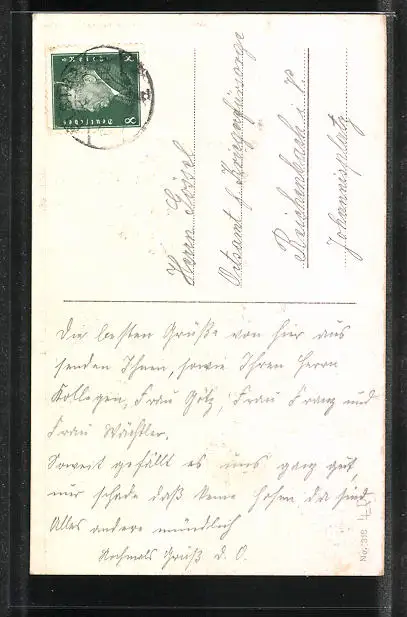 Herrn Gössel
Ortsamt f Kriegerfürsorge
Reichenbach i. V
Johannisplatz
Deutsches
Reich
8
8
Die besten Grüße von hier aus
senden Ihnen, sowie Ihren Herrn
Kollegen, Frau Götz, Frau Franz und
Frau Wächtler.
Soweit gefällt es uns ganz gut,
nur schade daß keine da sind
Alles andere mündlich
Nochmals Gruß d. O.
No. 318